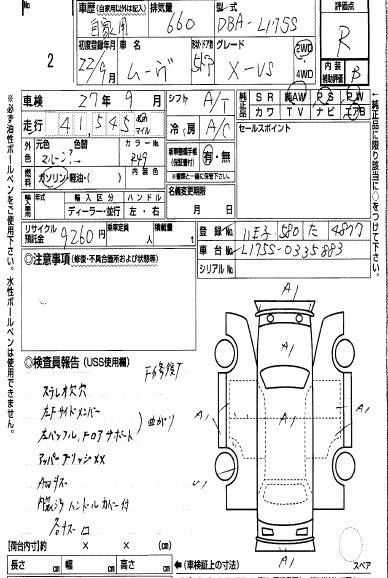 No
2
車歴(自家用以外は記入)
自家用
排気量
660
型式
DBA-L175S
評価点
R
初度登録年月
22/9月
車名
ムーヴ
形状・ドア数
5D
グレード
X-VS
2WD
4WD
内装
補助評価
B
車検
27年9月
シフト
A/T
純正品
SR
純AW
PS
PW
カワ
TV
ナビ
走行
41,545
km
マイル
冷房
A/C
セールスポイント
外色
元色
色替
カラーNo.
新車整備手帳
(保証書付)
有・無
※書類と一緒に保管下さい。
燃料
ガソリン・軽油・( )
内装色
名義変更期限
月 日
輸入車
年式
輸入区分
ハンドル
ディーラー・並行
左・右
リサイクル
預託金
9260円
乗車定員
人
積載量
t
登録No.
八王子 580 た 4877
車台No.
L175S-0335883
シリアルNo.
◎注意事項(修復・不具合箇所および状態等)
◎検査員報告(USS使用欄)
F修復T
ステレオ欠穴
左Fサイドメンバー
曲がり
アッパーブリッジXX
Aロアナス
ハンドルカバー付
A1
A1
A1
A1
A1
A1
A1
A1
【荷台内寸】約 × × (cm)
長さ cm
幅 cm
高さ cm
←(車検証上の寸法)
スペア
※必ず油性ボールペンをご使用下さい。水性ボールペンは使用できません。
※純正品に限り該当に○をつけて下さい。